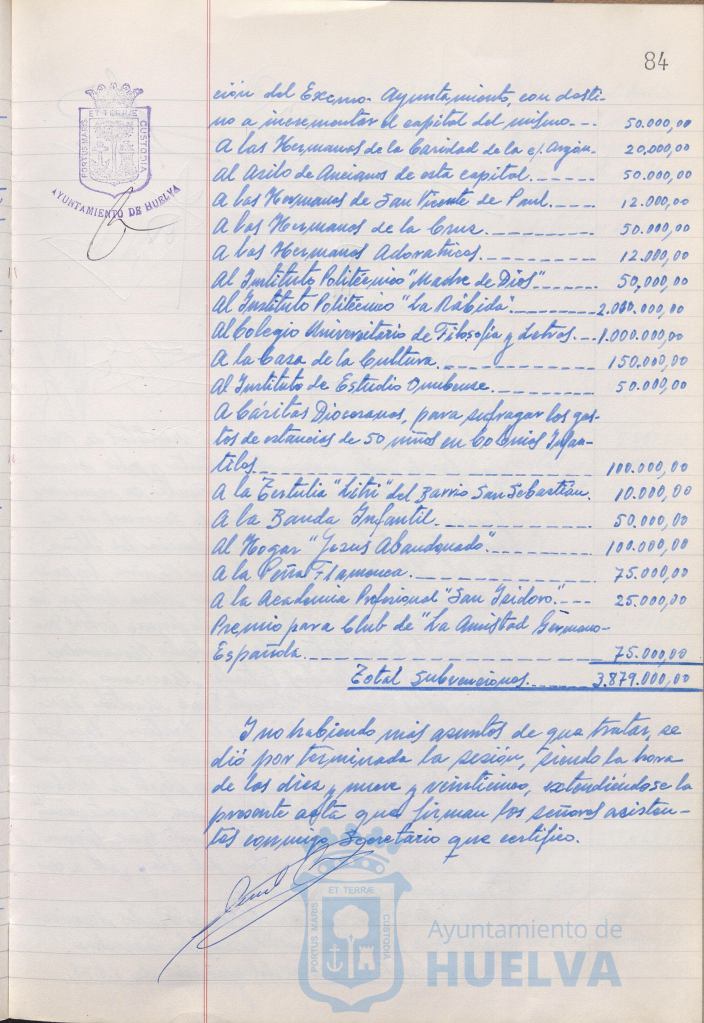 84
ET TERRÆ
PORTUS MARIS
CUSTODIA
AYUNTAMIENTO DE HUELVA
ción del Excmo. Ayuntamiento, con desti-
no a incrementar el capital del mismo--- 50.000,00
A las Hermanas de la Caridad de la c/. Aragón- 20.000,00
Al Asilo de Ancianos de esta capital.---- 50.000,00
A las Hermanas de San Vicente de Paul.---- 12.000,00
A las Hermanas de la Cruz.--------- 50.000,00
A las Hermanas Adoratrices.--------- 12.000,00
Al Instituto Politécnico "Madre de Dios"----- 50,000,00
Al Instituto Politécnico "La Rábida".-------- 2.000.000,00
Al Colegio Universitario de Filosofía y Letras.--- 1.000.000,00
A la Casa de la Cultura.------------ 150.000,00
Al Instituto de Estudio Onubense.-------- 50.000,00
A Cáritas Diocesanas, para sufragar los gas-
tos de estancias de 50 niños en Colonias Infan-
tiles.----------------------- 100.000,00
A la Tertulia "Litri" del Barrio San Sebastián. 10.000,00
A la Banda Infantil.------------ 50.000,00
Al Hogar "Jesus Abandonado".-------- 100.000,00
A la Peña Flamenca.------------- 75.000,00
A la Academia Profesional "San Isidoro".---- 25.000,00
Premio para Club de "La Amistad Germano-
Española.------------------- 75.000,00
Total Subvenciones.------ 3.879.000,00
Y no habiendo más asuntos de que tratar, se
dió por terminada la sesión, siendo la hora
de las diez y nueve y veinticinco, extendiéndose la
presente acta que firman los señores asisten-
tes conmigo Secretario que certifico.
ET TERRÆ
PORTUS MARIS
CUSTODIA
Ayuntamiento de
HUELVA